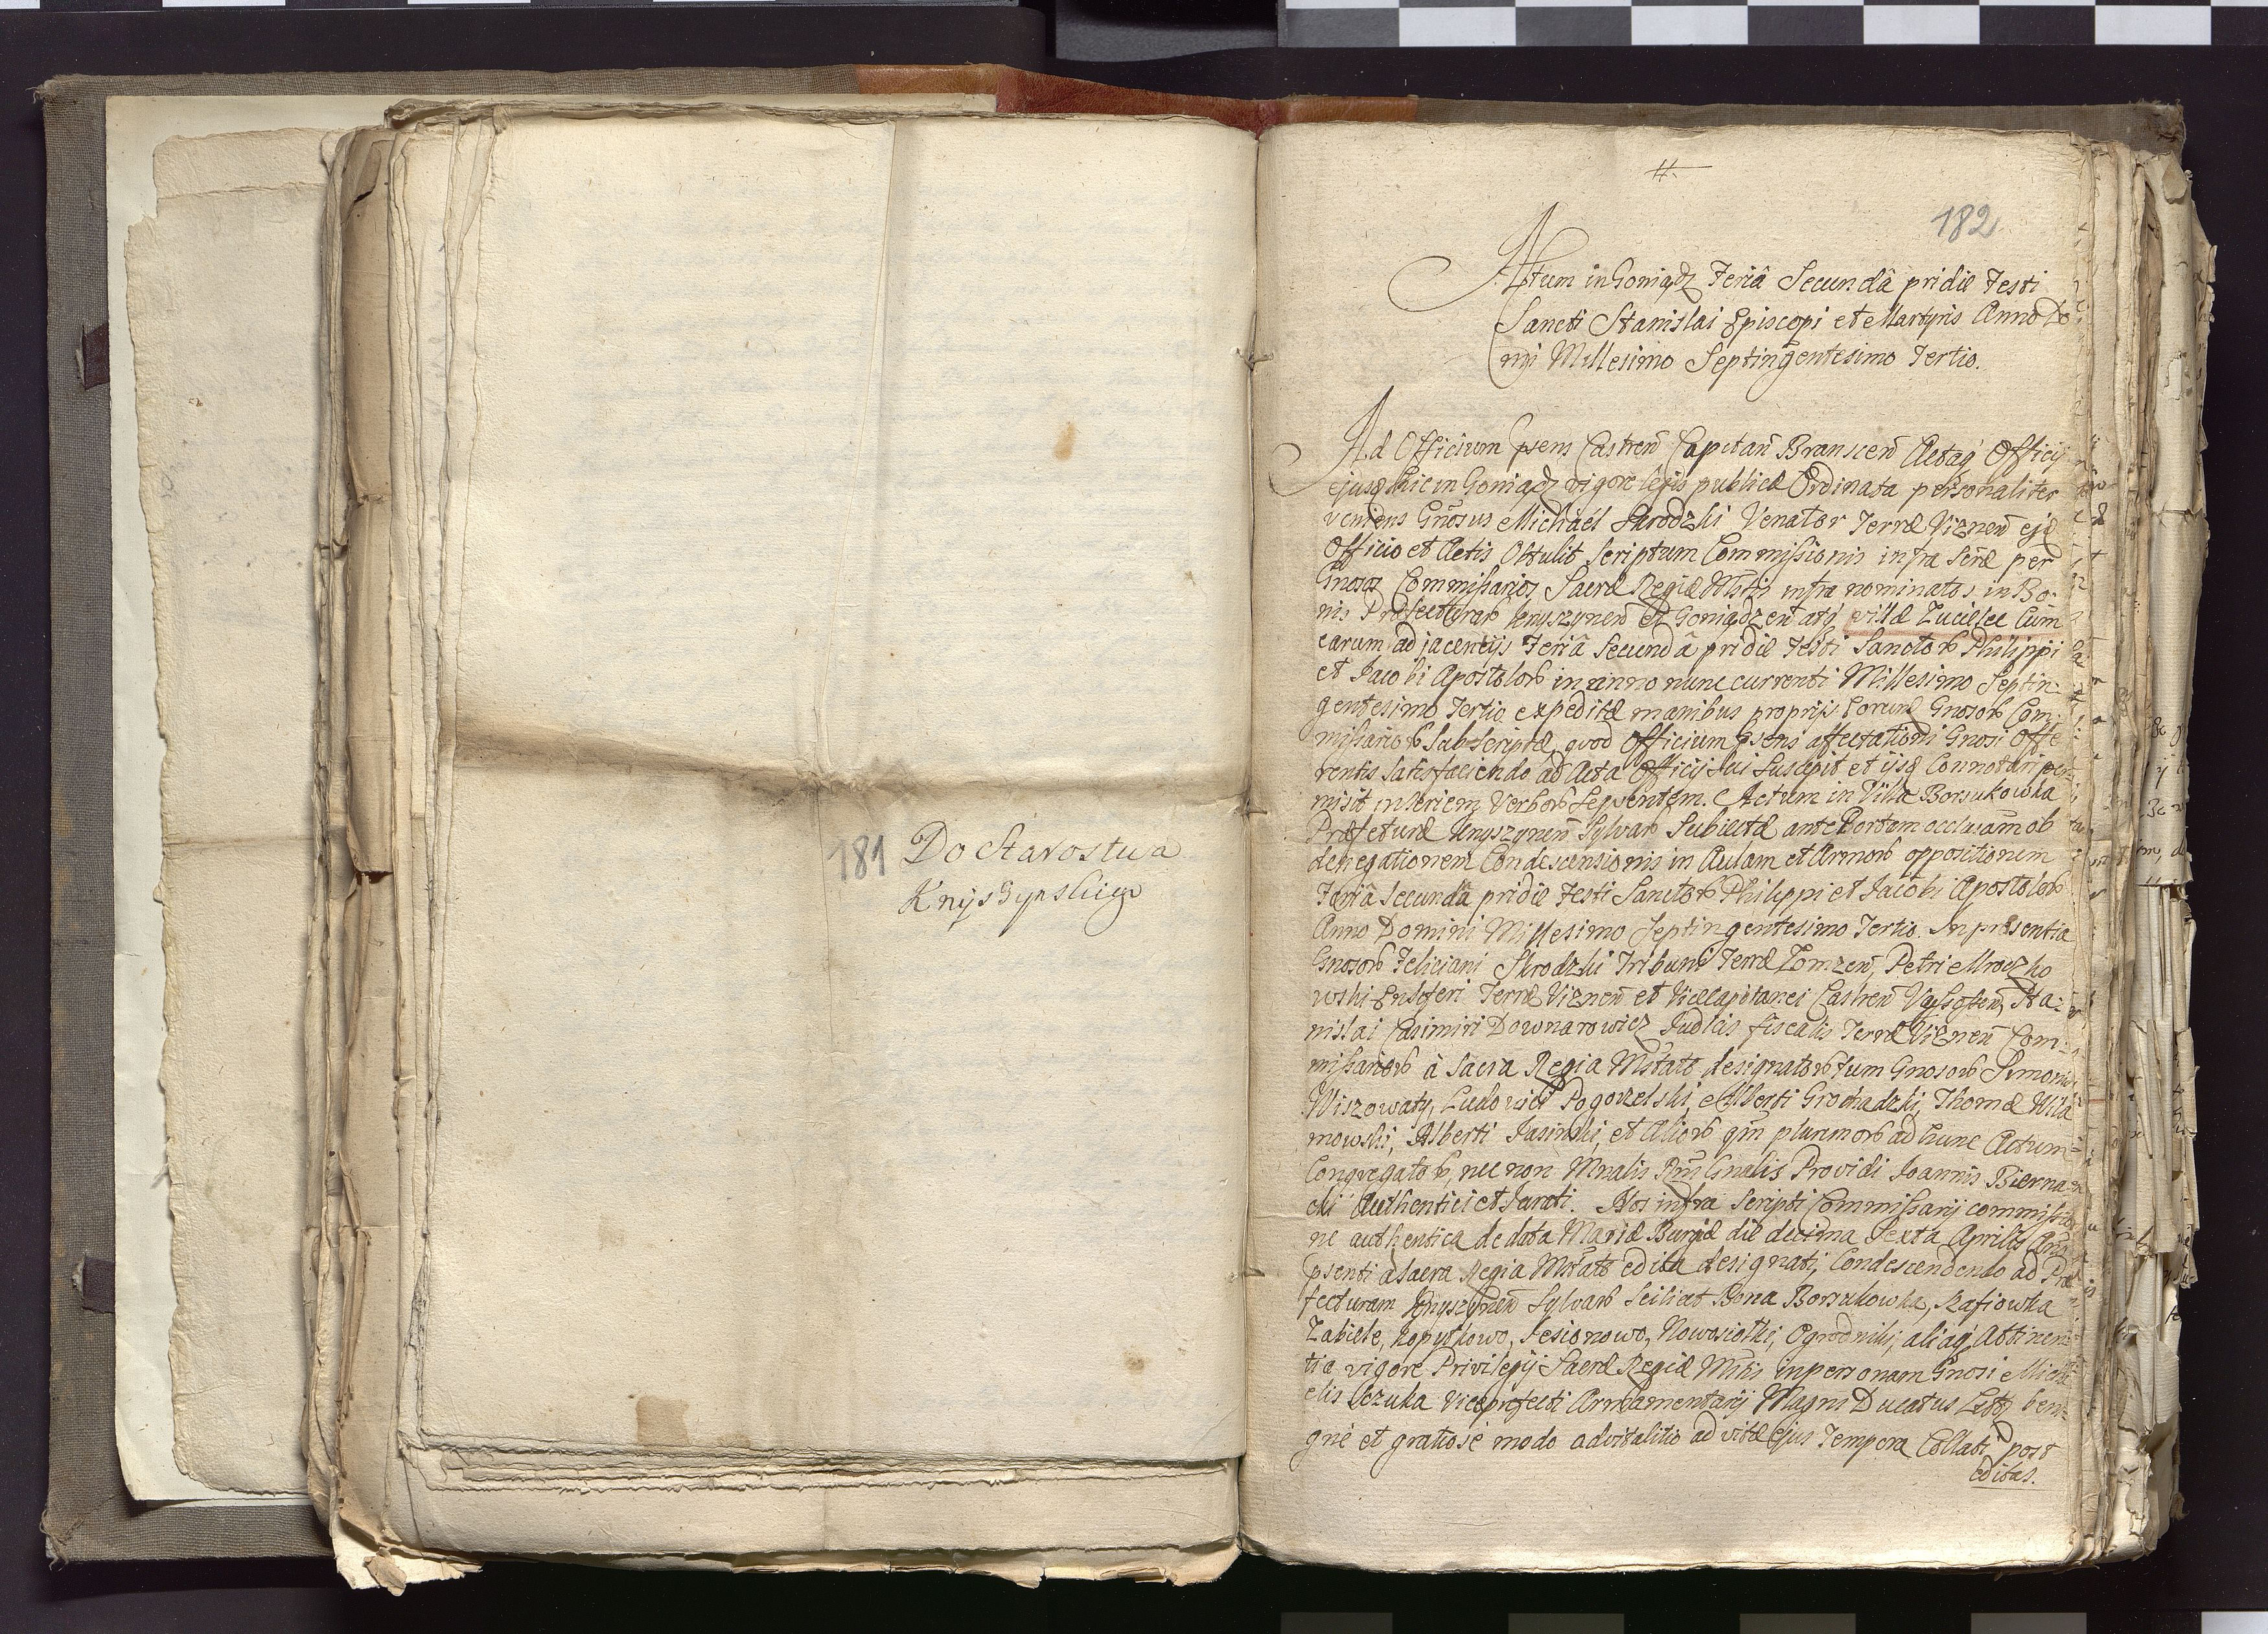 181 Do Starostwa
Knyszynskiego
182
Actum in Goniądz Feriâ Secundâ pridie Festi
Sancti Stanislai Episcopi et Martyris Anno Do
mni Millesimo Septingentesimo Tertio.
Ad Officium psens Castren Capitan Branscen Actaq Officij
ejusq hic in Goniądz vigore legis publicæ Ordinata personaliter
veniens Gnosus Michael Skrodzki Venator Terræ Viznen ejd
Officio et Actis Obtulit Scriptum Commissionis infra Scræ per
Gnosos Commissarios Sacræ Regiæ Mttis infra nominatos in Bo-
nis Præfecturar Knyszynen et Goniądzen atq villæ Zucielec Cum
earum adjacentijs Feriâ Secundâ pridie Festi Sanctorb Philippi
et Jacobi Apostolorb in anno nunc currenti Millesimo Septin-
gentesimo Tertio expeditæ manibus proprijs Eorund Gnosorb Com-
missariorb Subscriptæ, quod Officium psens affectationi Gnosi Offe
rentis Satisfaciendo ad Acta Officij Sui Suscepit et ijsq Connotari per-
misit in Seriem Verborb Seqventem. Actum in Villa Borsukowka
Præfeturæ Knyszynen Sylvarb Subiectæ ante Portam occlusam ob
denegationem Condescensionis in Aulam et Armorb oppositionem
Feriâ Secundâ pridie Festi Sanctorb Philippi et Jacobi Apostolorb
Anno Domini Millesimo Septingentesimo Tertio. In præsentia
Gnosorb Feliciani Skrodzki Tribuni Terræ Łomzen, Petri Mroczko
wski Ensiferi Terræ Viznen et Vicecapitanei Castren Sta-
nislai Casimiri Downarowicz Judicis fiscalis Terræ Viznen Com-
missariorb à Sacra Regia Mttate designatorb tum Gnosorb Simonis
Wiszowaty, Ludovici Pogorzelski, Alberti Grochadzki, Thomæ Wila
mowski, Alberti Jasinski, et Aliorb qm plurimorb ad hunc Actum
Congregatorb, nec non Mnalis Rni Gnalis Providi Joannis Bierna-
cki Authentici et Jurati. Nos infra Scripti Commissarij commissio
ne authentica de data Mariæ Burgi die decima Sexta Aprilis Ano
psenti a Sacra Regia Mttate edita designati, Condescendendo ad Præ
fecturam Knyszynen Sylvarb Scilicet Bona Borsukowka, Kafiowka
Zabiele, Kopytkowo, Jesionowo, Nowosiołki, Ogrodniki, aliaq Attinen-
tia vigore Privilegij Sacræ Regiæ Mttis in personam Gnosi Micha
elis Vicepræfecti Armamentarij Magni Ducatus Litt ben-
gnè et gratiosè modo advitalitio ad vitæ Ejus Tempora Collati, post
editas.